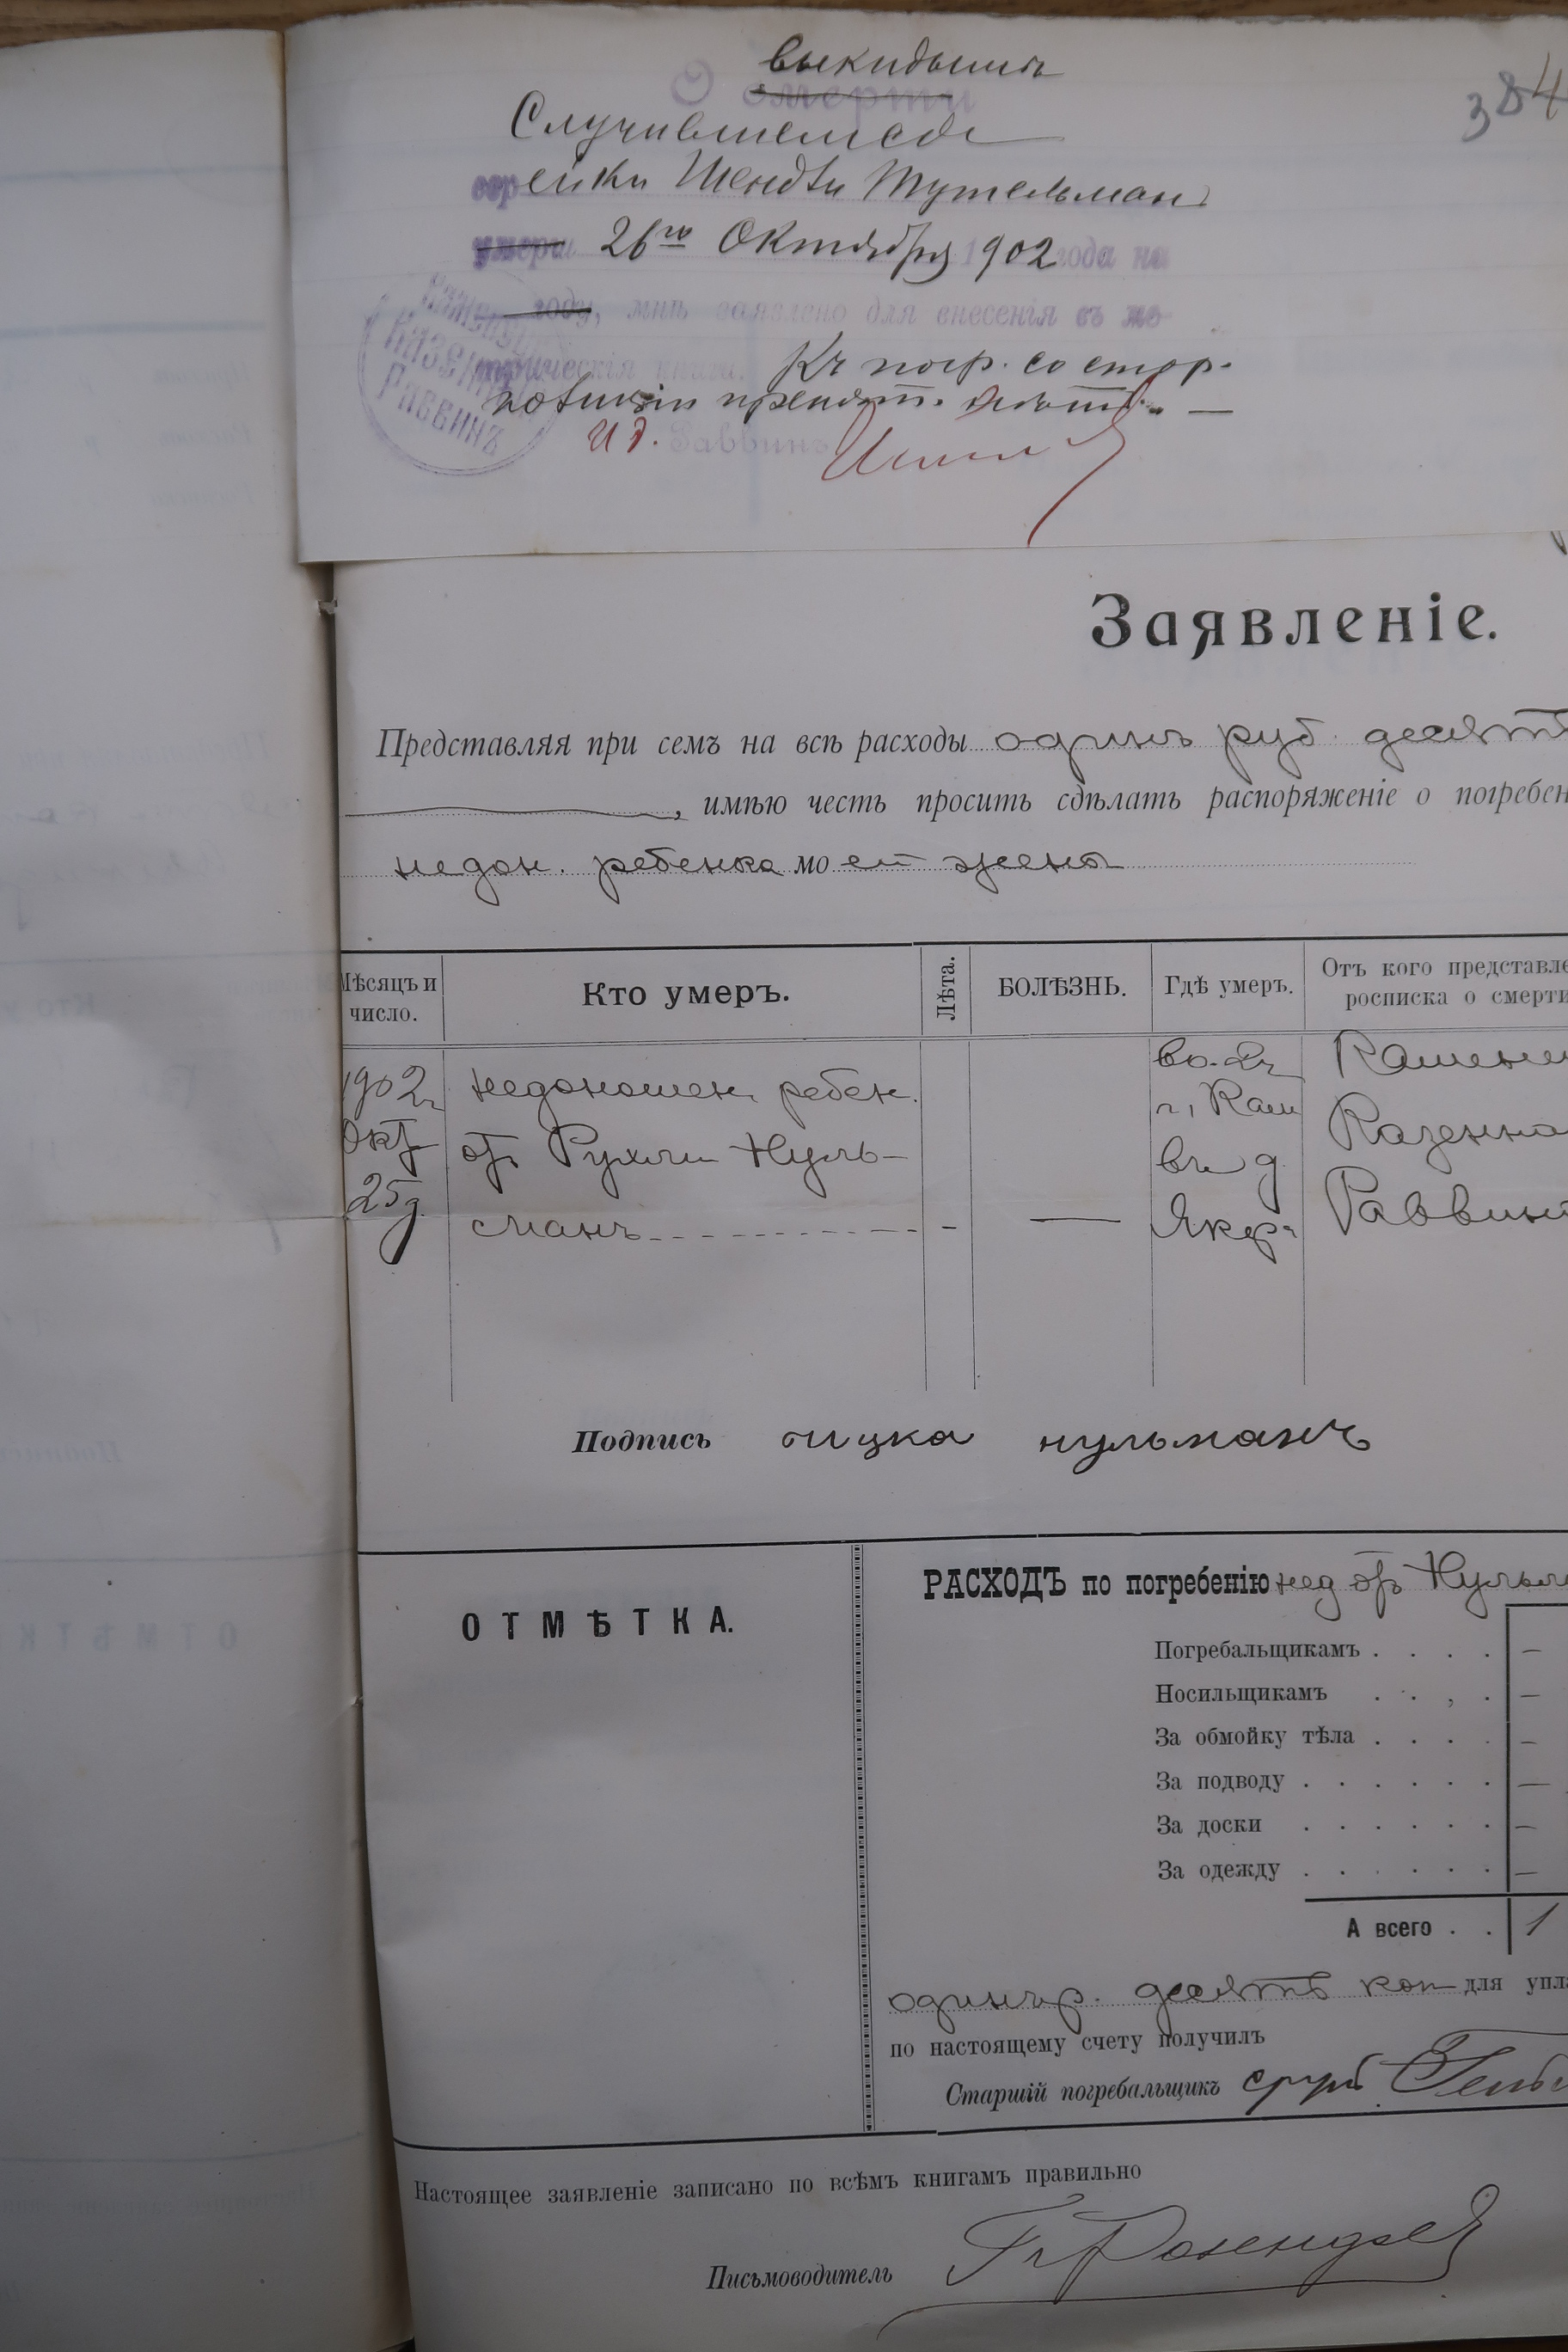 выкидышъ
О смерти
384
Случившемся
еврейки Шендли Тутельман
умерш 26го Октября 1902 года на
году, мнѣ заявлено для внесенія въ ме
трическія книги. Къ погр. со стор.
препятст.
Казенный
Раввинъ
И д. Раввинъ
Заявленіе.
Представляя при семъ на всѣ расходы одинъ руб. десять
, имѣю честь просить сдѣлать распоряженіе о погребен
недон. ребенка моей жены
Мѣсяцъ и число.
Кто умеръ.
Лѣта.
БОЛѢЗНЬ.
Гдѣ умеръ.
Отъ кого представле
росписка о смерти
1902г
Окт
25д.
недоношен. ребен.
от Рухли Нуль-
сманъ - -
г.
въ д
Казенна
Раввин
Подпись ицка нульманъ
ОТМѢТКА.
РАСХОДЪ по погребенію нед от Нульм
Погребальщикамъ . . . . —
Носильщикамъ . . , . —
За обмойку тѣла . . . . —
За подводу . . . . . . —
За доски . . . . . . —
За одежду . . . . . . —
А всего . . 1
одинъ р. десять коп для упла
по настоящему счету получилъ
Старшій погребальщикъ
Настоящее заявленіе записано по всѣмъ книгамъ правильно
Письмоводитель